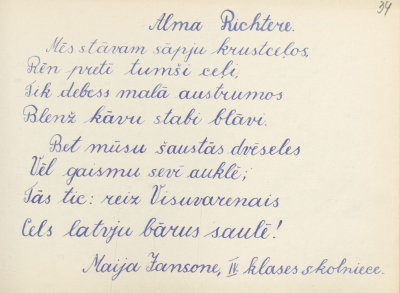 34
Alma Richtere.
Mēs stāvam sāpju krustceļos,
Rēn pretī tumši ceļi,
Tik debess malā austrumos
Blenž kāvu stabi blāvi.
Bet mūsu šaustās dvēseles
Vēl gaismu sevī auklē;
Tās tic: reiz Visuvarenais
Cels latvju bārus saulē!
Maija Jansone, II klases skolniece.